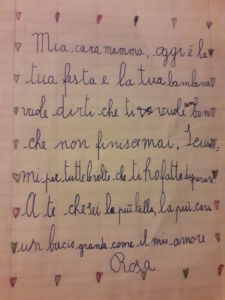 Mia cara mamma, oggi è la
tua festa e la tua bambina
vuole dirti che ti vuole un ben
che non finisce mai, Scusa-
mi per tutte le volte che ti ho fatto disperare
A te che sei la più bella, la più cara
un bacio grande come il mio amore
Rosa